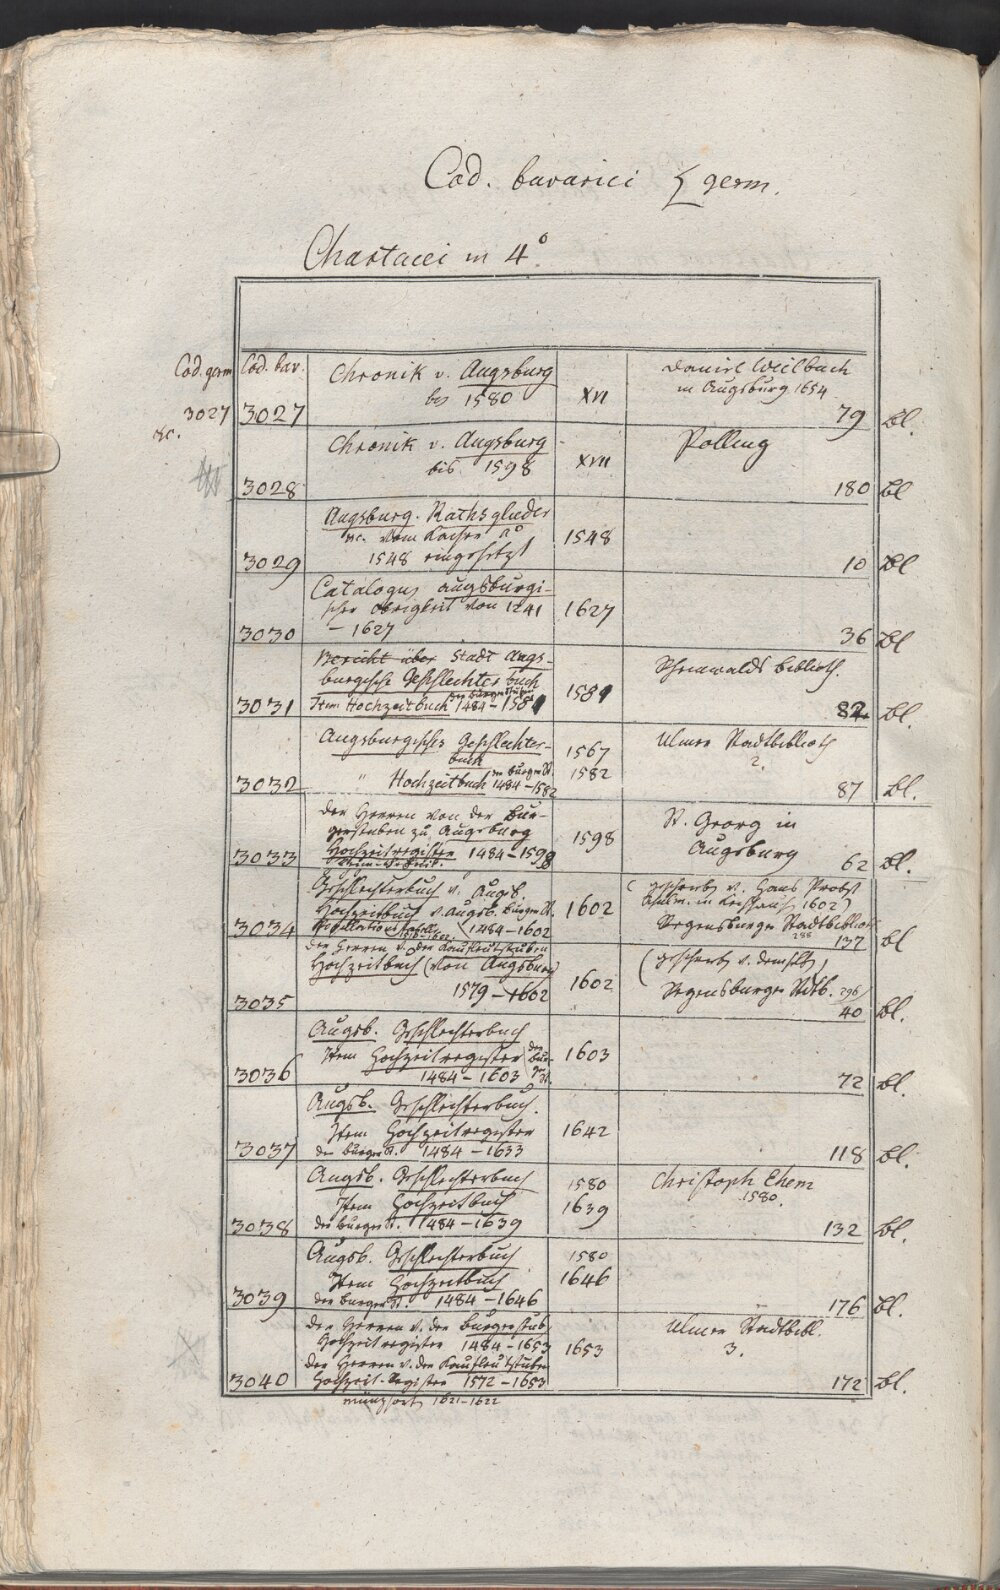 Cod. bavarici germ.
Chartacei in 4°.
Cod. germ
3027
&c.
Cod. bav.
3027
Chronik v. Augsburg
bis 1580
XVII
Daniel Weilbach
in Augsburg 1654
79 Bl.
3028
Chronik v. Augsburg
bis 1598
XVII
Polling
180 Bl
3029
Augsburg. Rathsglieder
&c. vom Kaiser aº
1548 eingesetzt
1548
10 Bl
3030
Catalogus augsburgi-
scher Obrigkeit von 1241
– 1627
1627
36 Bl
3031
Bericht über Stadt Augs-
burgische Geschlechter buch
der Burgerstuben
Item Hochzeitbuch 1484 – 1581
1581
Biblioth.
82 Bl.
3032
Augsburgisches Geschlechter-
buch
der burger St.
" Hochzeitbuch 1484 – 1582
1567
1582
Ulmer Stadtbiblioth
2.
87 Bl.
3033
Der Herren von der Bur-
gerstuben zu Augsburg
Hochzeitregister 1484 – 1598
1598
St. Georg in
Augsburg
62 Bl.
3034
Geschlechterbuch v. Augsb.
Hochzeitbuch v. Augsb. burger St.
1484 – 1602
1602
(geschrieb. v. Hans Probst
1602)
Regensburger Stadtbiblioth
288
137 Bl
3035
der Herren v. der Kaufleutstuben
Hochzeitbuch (von Augsburg)
1579 – 1602
1602
(geschrieb. v. demselb.)
Regensburger Stdtb. 296)
40 Bl.
3036
Augsb. Geschlechterbuch
Item Hochzeitregister (der
Bur-
ger
St.
1484 – 1603
1603
72 Bl.
3037
Augsb. Geschlechterbuch.
Item Hochzeitregister
der burger St. 1484 – 1633
1642
118 Bl.
3038
Augsb. Geschlechterbuch
Item Hochzeitbuch
der burger St. 1484 – 1639
1580
1639
Christoph Ehem
1580.
132 Bl.
3039
Augsb. Geschlechterbuch
Item Hochzeitbuch
der burger St. 1484 – 1646
1580
1646
176 Bl.
3040
der Herren v. der Burgerstub.
Hochzeitregister 1484 – 1653
der Herren v. der Kaufleutstuben
Hochzeit-Register 1572 – 1653
1653
Ulmer Stadtbibl.
3.
172 Bl.
Münzsort. 1621–1622